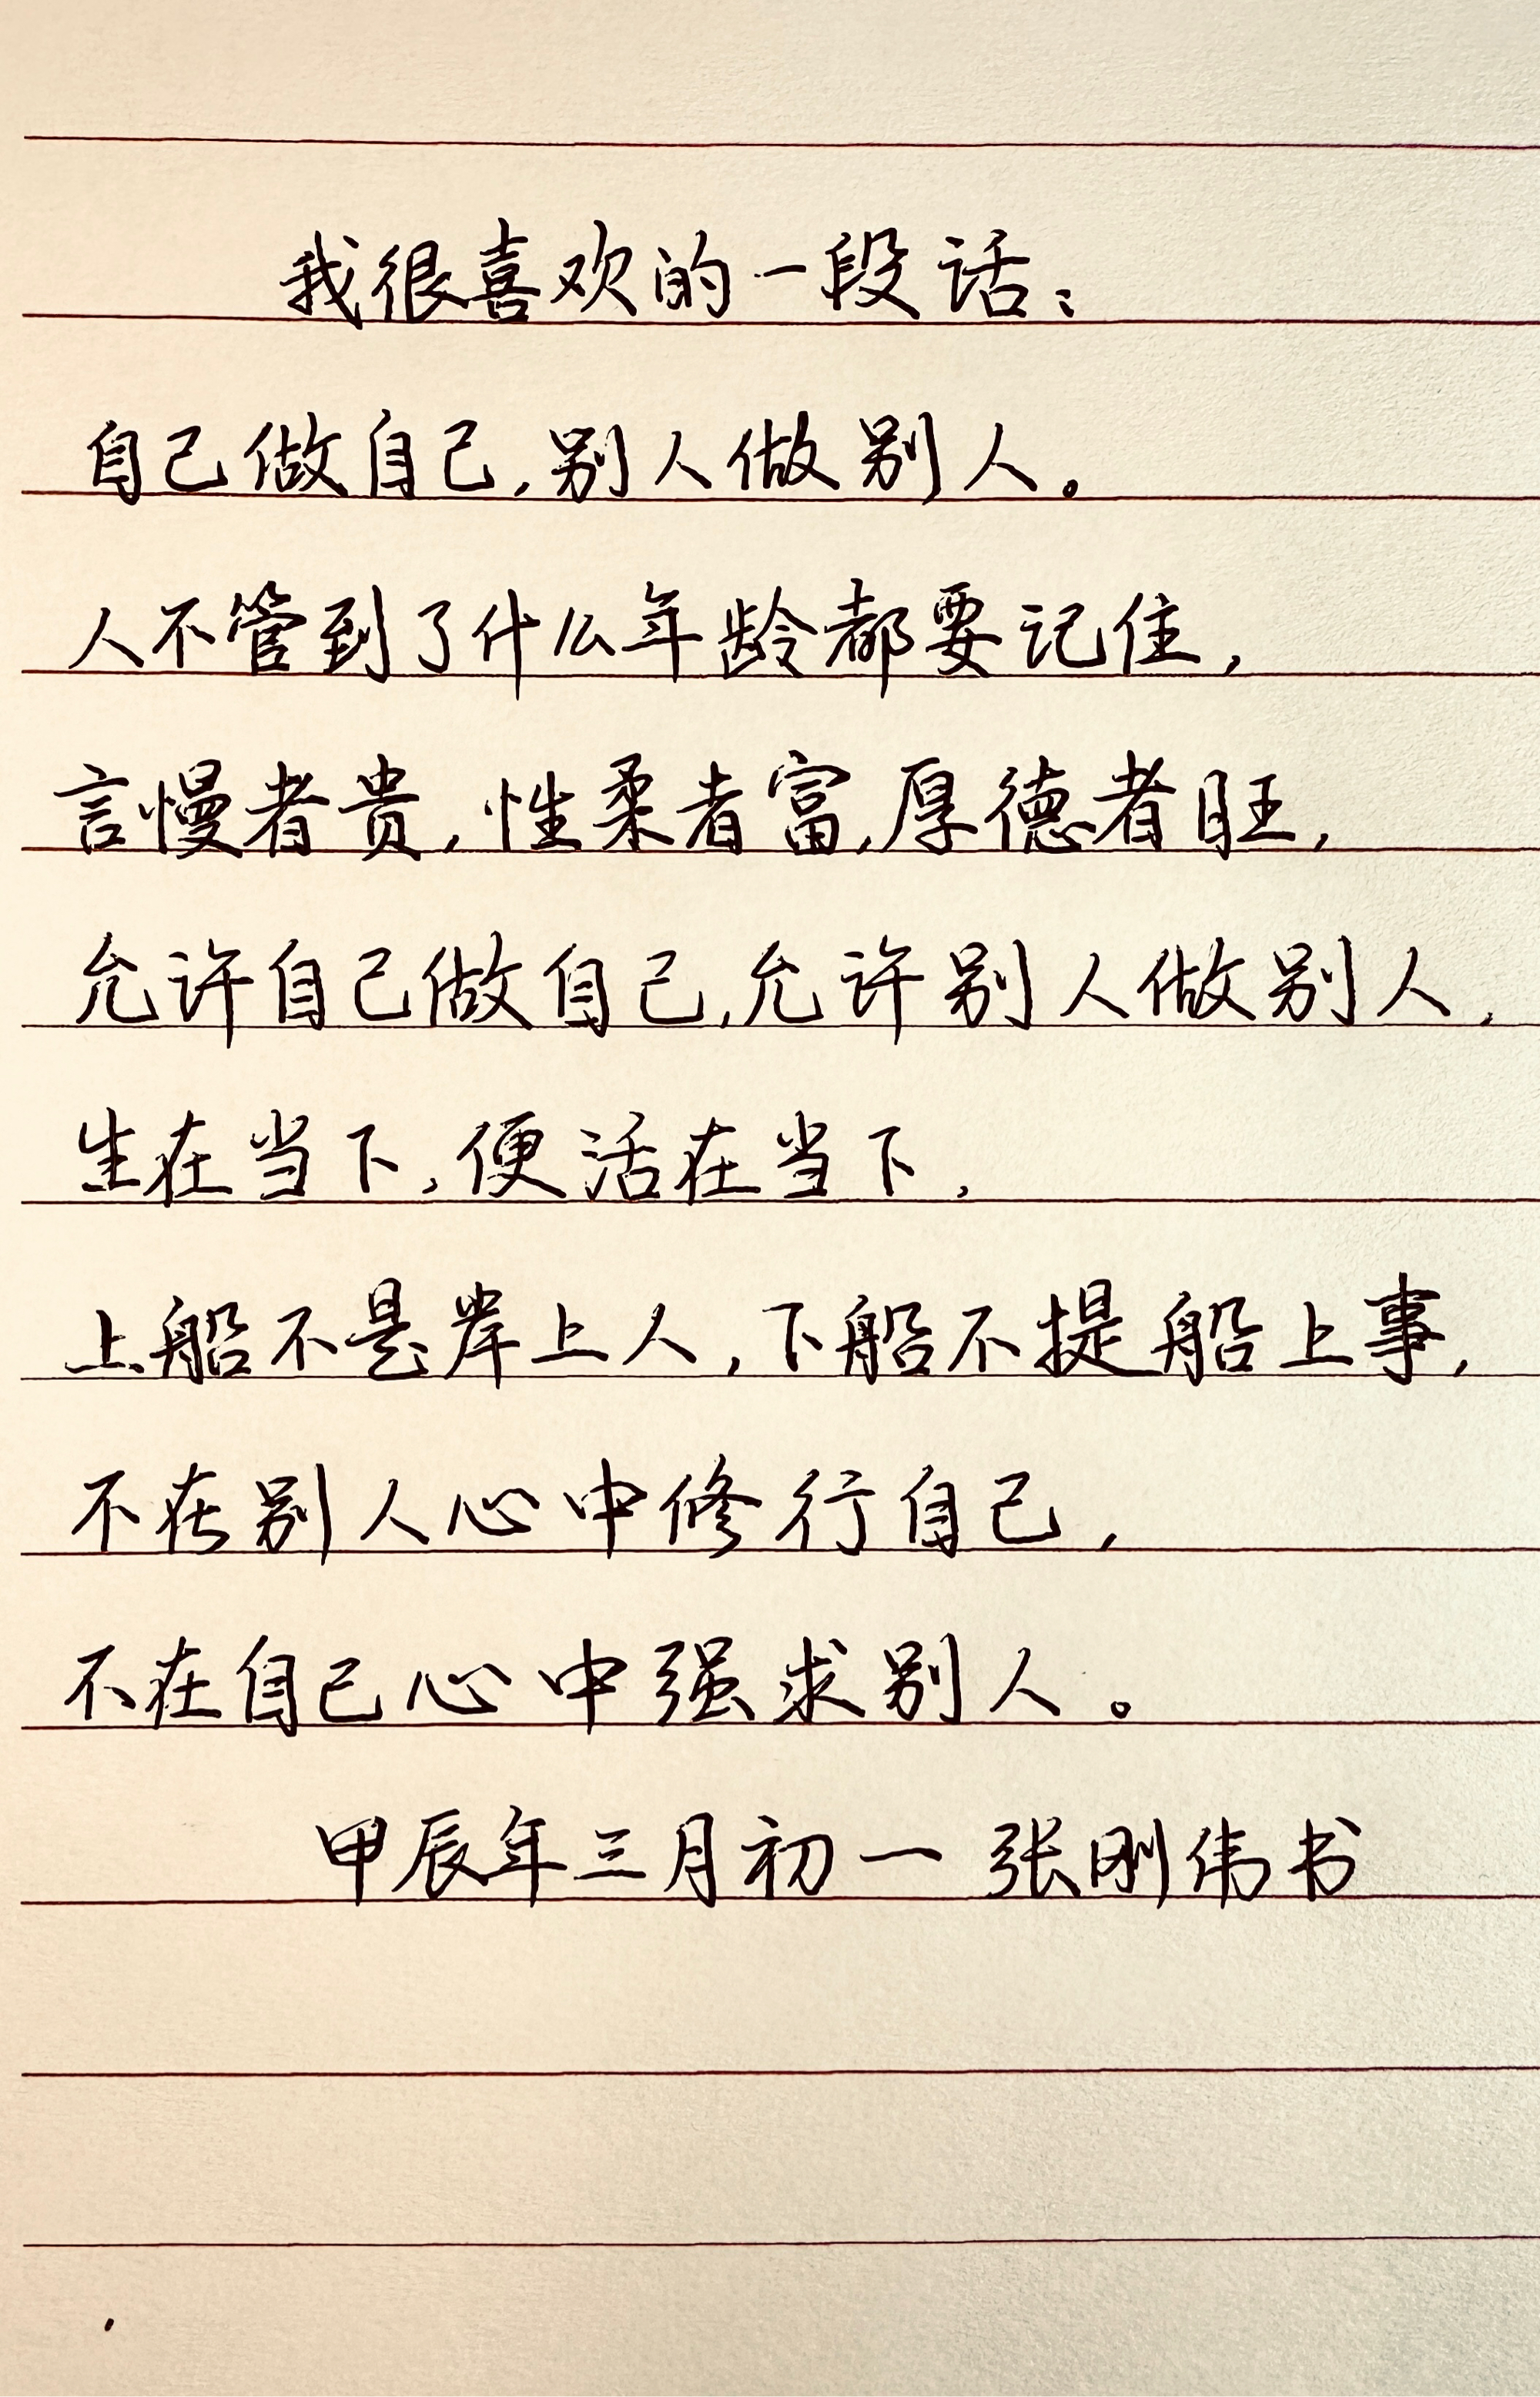 我很喜欢的一段话：
自己做自己，别人做别人。
人不管到了什么年龄都要记住，
言慢者贵，性柔者富，厚德者旺，
允许自己做自己，允许别人做别人，
生在当下，便活在当下，
上船不是岸上人，下船不提船上事，
不在别人心中修行自己，
不在自己心中强求别人。
甲辰年三月初一 张刚伟书